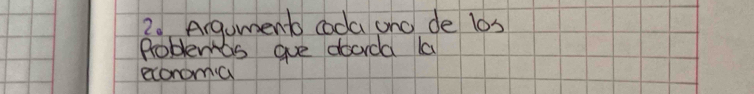 2. Argumento cada una de los
Problemas que aborda la
economia